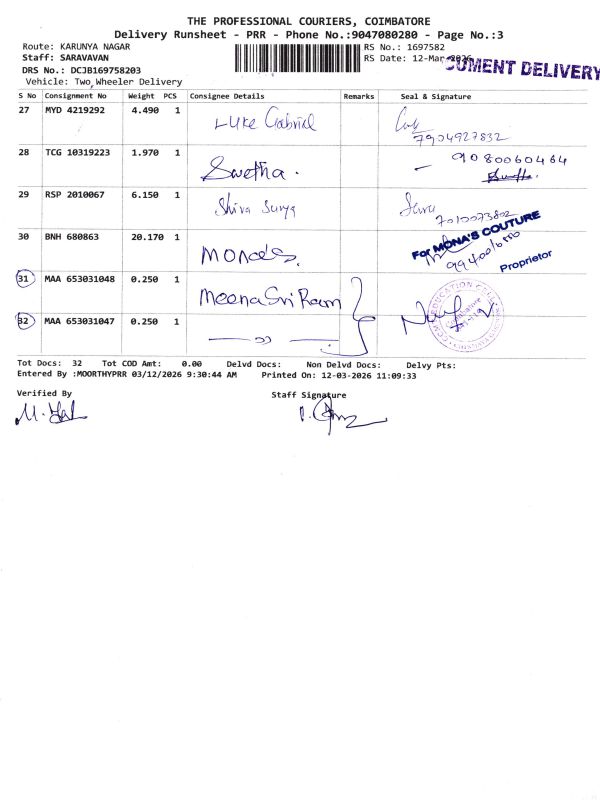 THE PROFESSIONAL COURIERS, COIMBATORE
Delivery Runsheet - PRR - Phone No.:9047080280 - Page No.:3
Route: KARUNYA NAGAR
RS No.: 1697582
Staff: SARAVAVAN
RS Date: 12-Mar-2026
CUMENT DELIVERY
DRS No.: DCJB169758203
Vehicle: Two Wheeler Delivery
S No Consignment No Weight PCS Consignee Details Remarks Seal & Signature
27 MYD 4219292 4.490 1 Luke Gabriel
7904927832
28 TCG 10319223 1.970 1 Swetha. 9080060464
29 RSP 2010067 6.150 1 Shiva Surya
7010073802
30 BNH 680863 20.170 1 Monads. For MONA'S COUTURE
Proprietor
31 MAA 653031048 0.250 1 Meena Sri Ram
32 MAA 653031047 0.250 1
EDUCATION
Coimbatore
Tot Docs: 32 Tot COD Amt: 0.00 Delvd Docs: Non Delvd Docs: Delvy Pts:
Entered By :MOORTHYPRR 03/12/2026 9:30:44 AM Printed On: 12-03-2026 11:09:33
Verified By Staff Signature